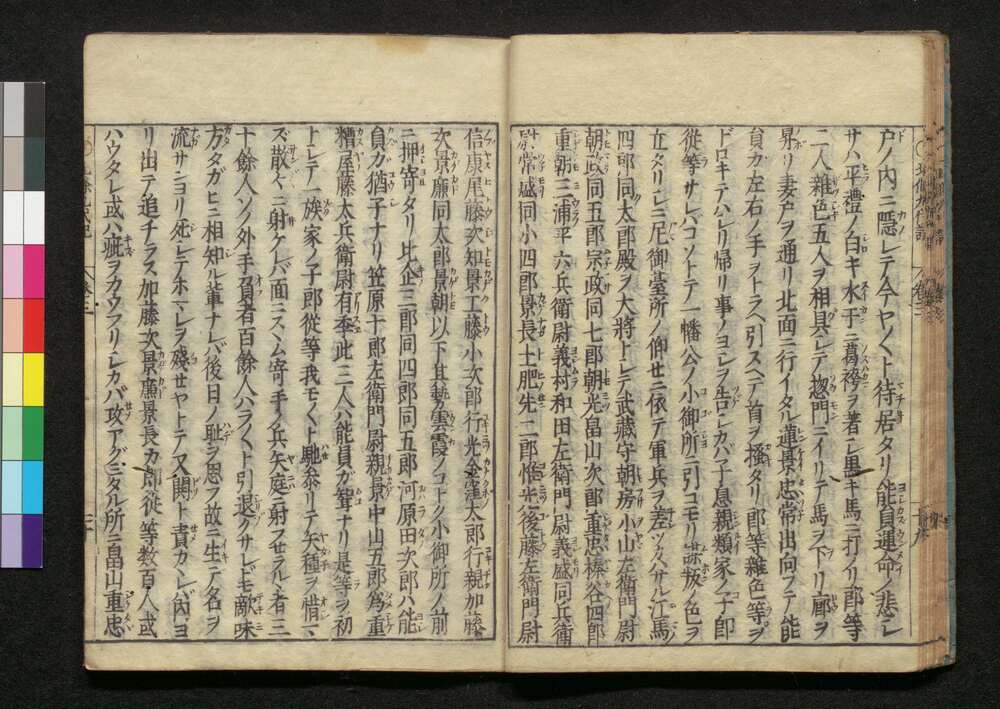 戸ノ内ニ隠レテ今ヤ〳〵ト待居タリ能員運命ノ悲シ
サハ平禮ノ白キ水干ニ葛袴ヲ著シ黒キ馬ニ打ノリ郎等
二人雑色五人ヲ相具シテ惣門ニイリテ馬ヲ下リ廊ヲ
昇リ妻戸ヲ通リ北面ニ行イタル蓮景忠常出向フテ能
員カ左右ノ手ヲトラヘ引スヘテ首ヲ掻タリ郎等雑色等
ドロキテハシリ帰リ事ノヨシヲ告シカバ子息親類家ノ子郎
從等サレバコソトテ一幡公ノ小御所ニ引コモリ謀叛ノ色ヲ
立タリシニ尼御臺所ノ仰セニ依テ軍兵ヲ差ツカハサル江馬
四郎同太郎殿ヲ大將トシテ武藏守朝房小山左衛門尉
朝政同五郎宗政同七郎朝光畠山次郎重忠榛谷四郎
重朝三浦平六兵衛尉義村和田左衛門尉義盛同兵衛
尉常盛同小四郎景長土肥先二郎惟光後藤左衛門尉
信康尾藤次知景工藤小次郎行光金窪太郎行親加藤
次景廉同太郎景朝以下其勢雲霞ノコトク小御所ノ前
ニ押寄タリ比企三郎同四郎同五郎河原田次郎ハ能
員カ猶子ナリ笠原十郎左衛門尉親景中山五郎爲重
糟屋藤太兵衛尉有季此三人ハ能員ガ聟ナリ是等ヲ初
トレテ一族家ノ子郎從等我モ〳〵ト馳参リテ矢種ヲ惜マ
ズ散々ニ射ケレバ面ニスヽム寄手ノ兵矢庭ニ射フセラルヽ者三
十餘人ソノ外手負者百餘人ハラ〳〵ト引退クサレモ敵味
方タガヒニ相知ル輩ナレバ後日ノ耻ヲ思フ故ニ生テ名ヲ
流サンヨリ死シテホマレヲ殘セヤトテ又鬨ト責カレバ内ヨ
リ出テ追チラス加藤次景廉景長カ郎從等数百人或
ハウタレ或ハ疵ヲカウフリシカバ攻アグミタル所ニ畠山重忠